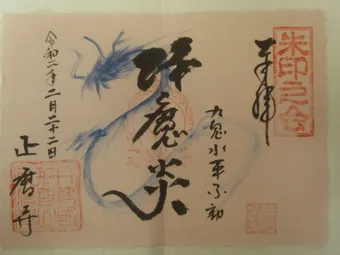 朱印之会
奉拝
九鬼水軍不動
降魔炎
令和二年二月二十二日
正暦寺